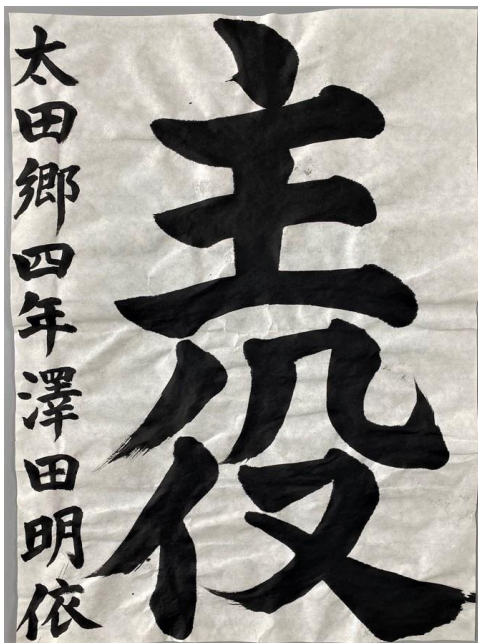 主役
太田郷四年澤田明依